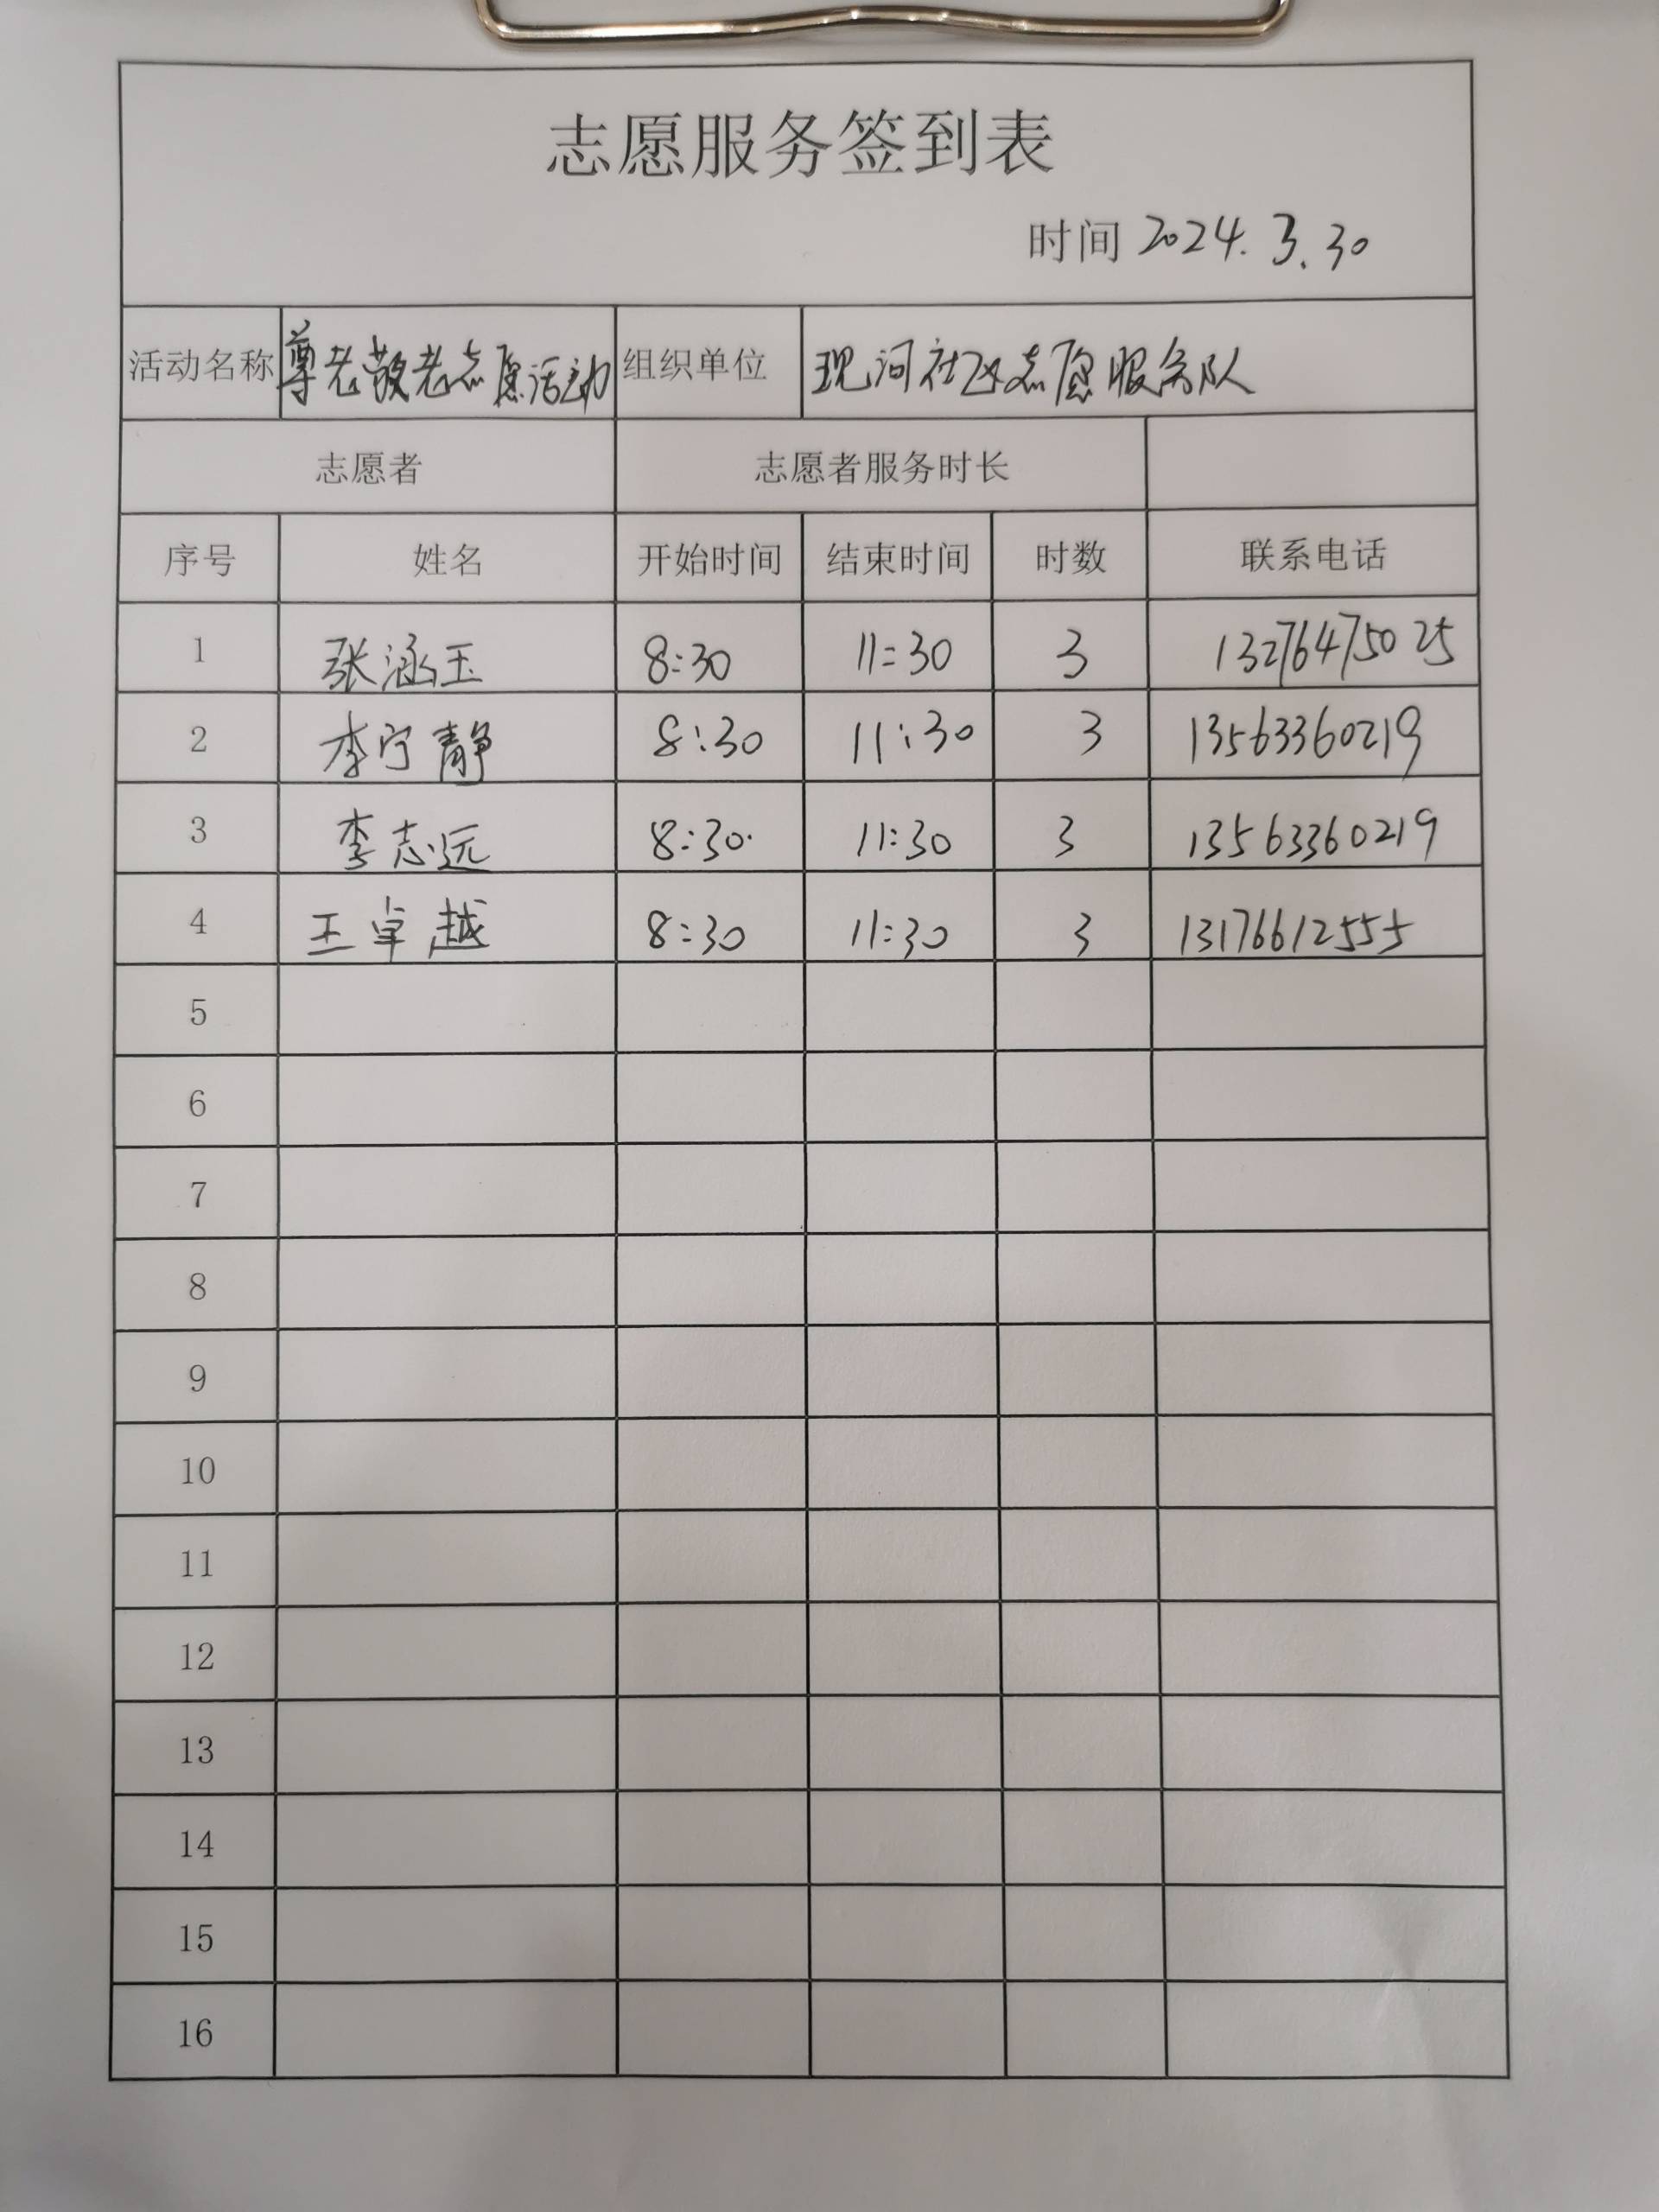 志愿服务签到表
时间 2024.3.30
活动名称 尊老敬老志愿活动 组织单位 现河社区志愿服务队
志愿者 志愿者服务时长
序号 姓名 开始时间 结束时间 时数 联系电话
1 张涵玉 8:30 11:30 3 13276475025
2 李宁静 8:30 11:30 3 13563360219
3 李志远 8:30 11:30 3 13563360219
4 王卓越 8:30 11:30 3 13176612555
5
6
7
8
9
10
11
12
13
14
15
16